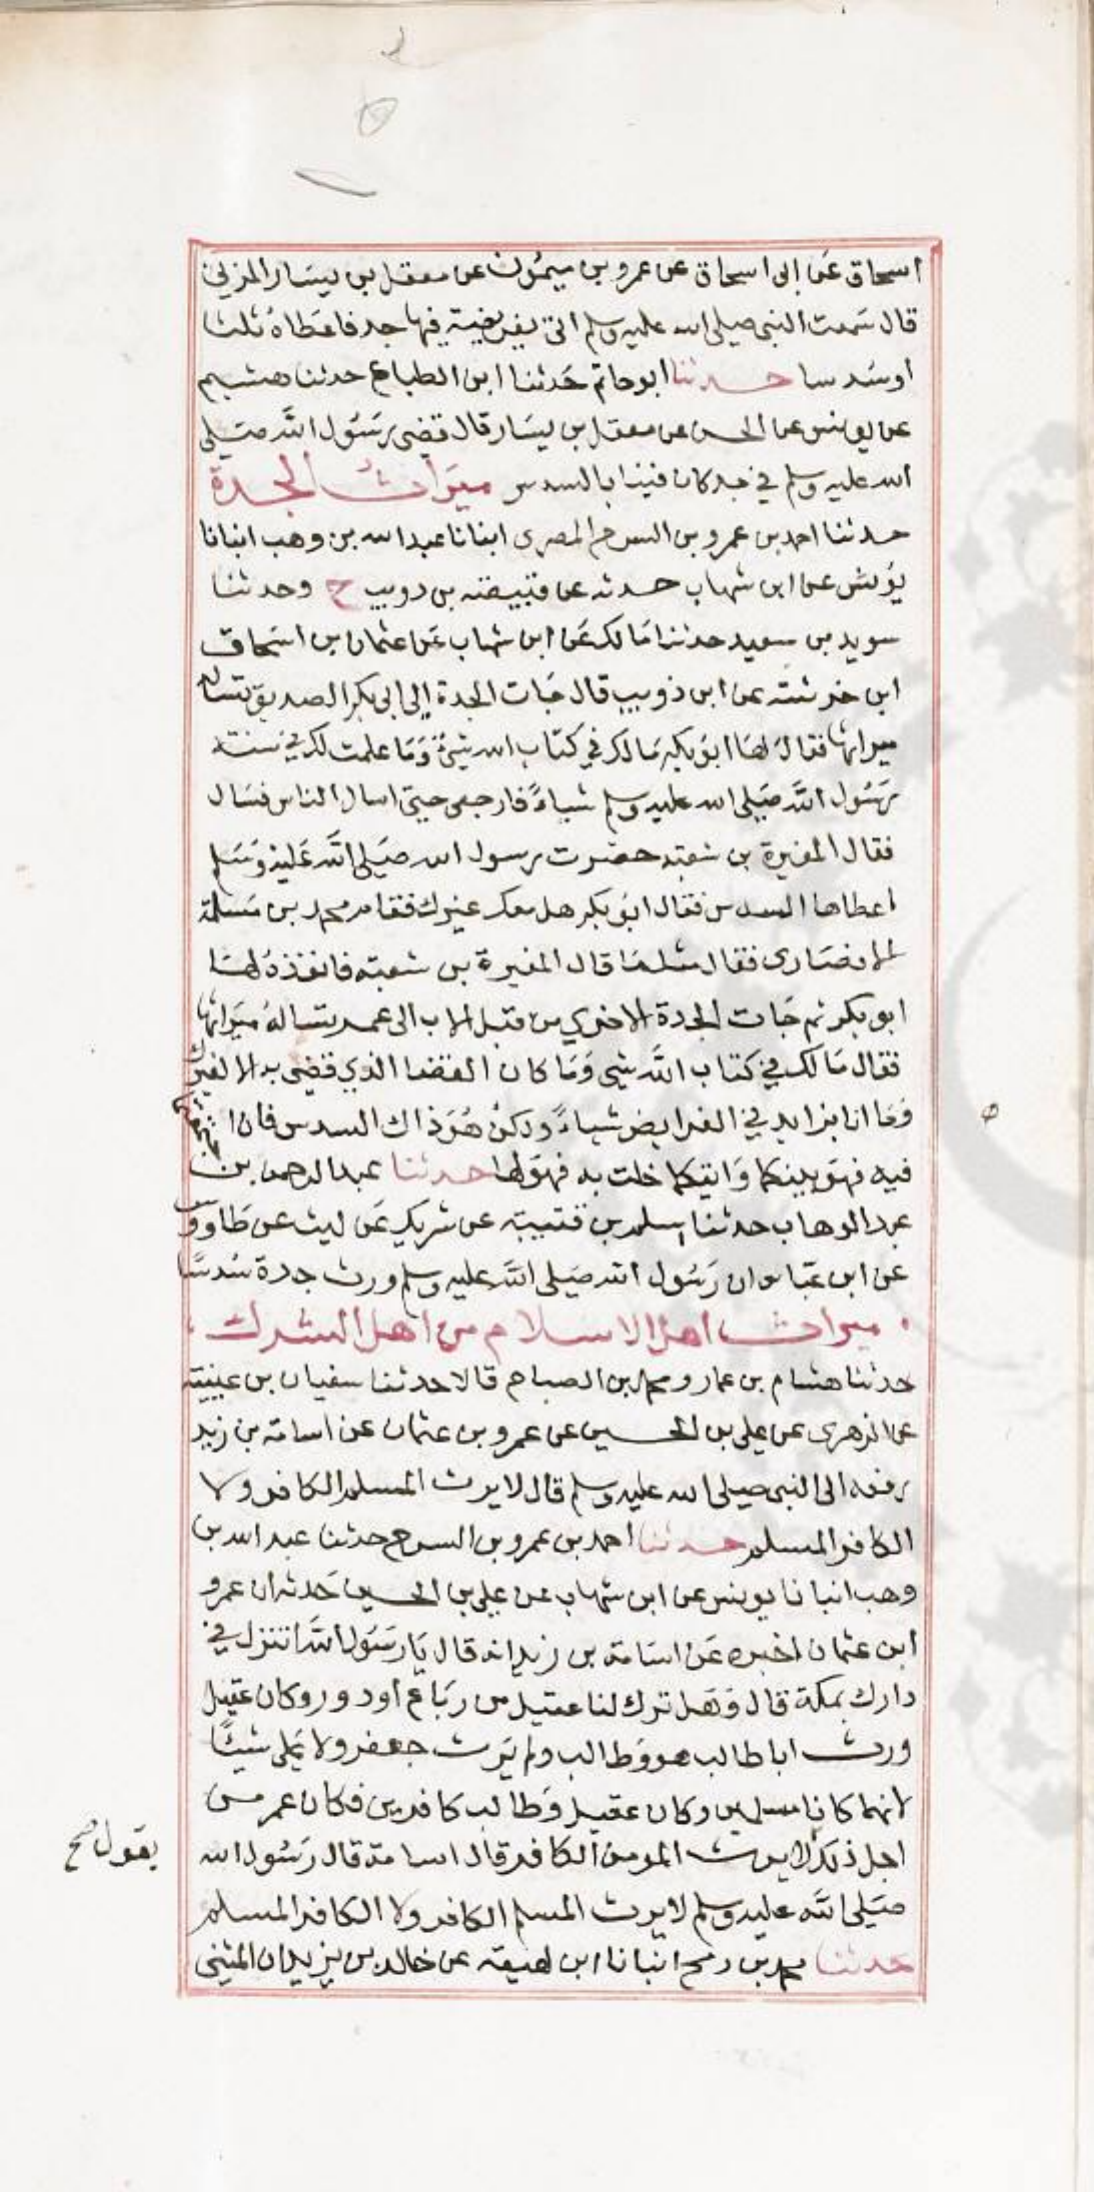 اسحاق عَن ابى اسحاق عن عمرو بن ميمُون عن معقل بن يسَار المزني
قال سَمعت النبى صلى الله عليه وسلم اتى بفريضية فيها جد فاعَطاهُ ثلثا
اوسُدسا حدثنا ابوحاتم حَدثنا ابن الطباع حدثنا هشيم
عن يونس عن الحسن عن معقل بن يسَار قال قضى رسُول الله صَلى
الله عليه وسلم في جد كان فينا بالسدس ميَراثُ الجدة
حدثنا احمد بن عمرو بن السرح المصرى انبانا عبد الله بن وهب انبانا
يوُنس عن ابن شهاب حدثه عن قبيصته بن دويب ح وحدثنا
سويد بن سعيد حدثنا مَالك عَن ابن شهاب عَن عثمان بن اسَحاق
ابن خرشته عن ابن ذويب قال جَات الجدة الى ابى بكر الصديق تساله
ميراثها فقال لهَا ابوُ بكر مَا لك في كتَاب الله شئ وَمَا علمت لك في سنة
رسُول الله صَلى الله عليه وسلم شياءً فارجعى حتى اسال الناس فسَال
فقال المغيرة بن شعبته حضرت رسول الله صَلى الله عَليه وَسَلم
اعطاها السدس فقال ابوُ بكر هل معك غيرك فقام محمد بن مَسلمة
الانصَارى فقال مثلمَا قال المغيرة بن شعبته فانفذهُ لهَا
ابو بكر ثم جَات الجدة الاخري من قبل الاب الى عمر تسالهُ ميَراثها
فقال مَا لك في كتاب الله شي وَمَا كان القضا الذي قضى به الا لغيرك
وَمَا انا بزايد في الفرايض شياءً ولكن هُوَ ذاك السدس فان اجتمعتما
فيه فهوَ بينكما وَايتكما خلت به فهوَ لها حدثنا عبد الرحمن بن
عبد الوهاب حدثنا سلم بن قتيبته عن شريك عَن ليث عن طَاووس
عن ابن عَباس ان رَسُول الله صَلى الله عليه وسلم ورث جدة سُدسًا
ميراث اهل الاسلام من اهل الشرك
حدثنا هشام بن عمار ومحمد بن الصباح قالا حدثنا سفيان بن عيينته
عن الزهرى عن على بن الحسين عن عمرو بن عثمان عن اسامة بن زيد
رفعه الى النبى صلى الله عليه وسلم قال لا يرث المسلم الكافر ولا
الكافر المسلم حدثنا احمد بن عمرو بن السرح حدثنا عبد الله بن
وهب انبانا يونس عن ابن شهاب عن على بن الحسين حَدثه ان عمرو
ابن عثمان اخبره عَن اسَامة بن زيد انه قال يَا رسَوُل الله اتنزل في
دارك بمكة قال وَهَل ترك لنا عقيل من ربَاع اود ور وكان عقيل
ورث اباطالب هو وَطالب ولم يَرث جعفر ولا عَلى شيئًا
لانهما كانا مسلمين وكان عقيل وَطالب كافرين فكان عمر من
اجل ذلك لا يرث المومن الكافر قال اسامة قال رسُول الله
يقول صح
صَلى الله عليه وسلم لا يرث المسلم الكافر ولا الكافر المسلم
حدثنا محمد بن رمح انبانا ابن لهيعته عن خالد بن يزيد ان المثنى